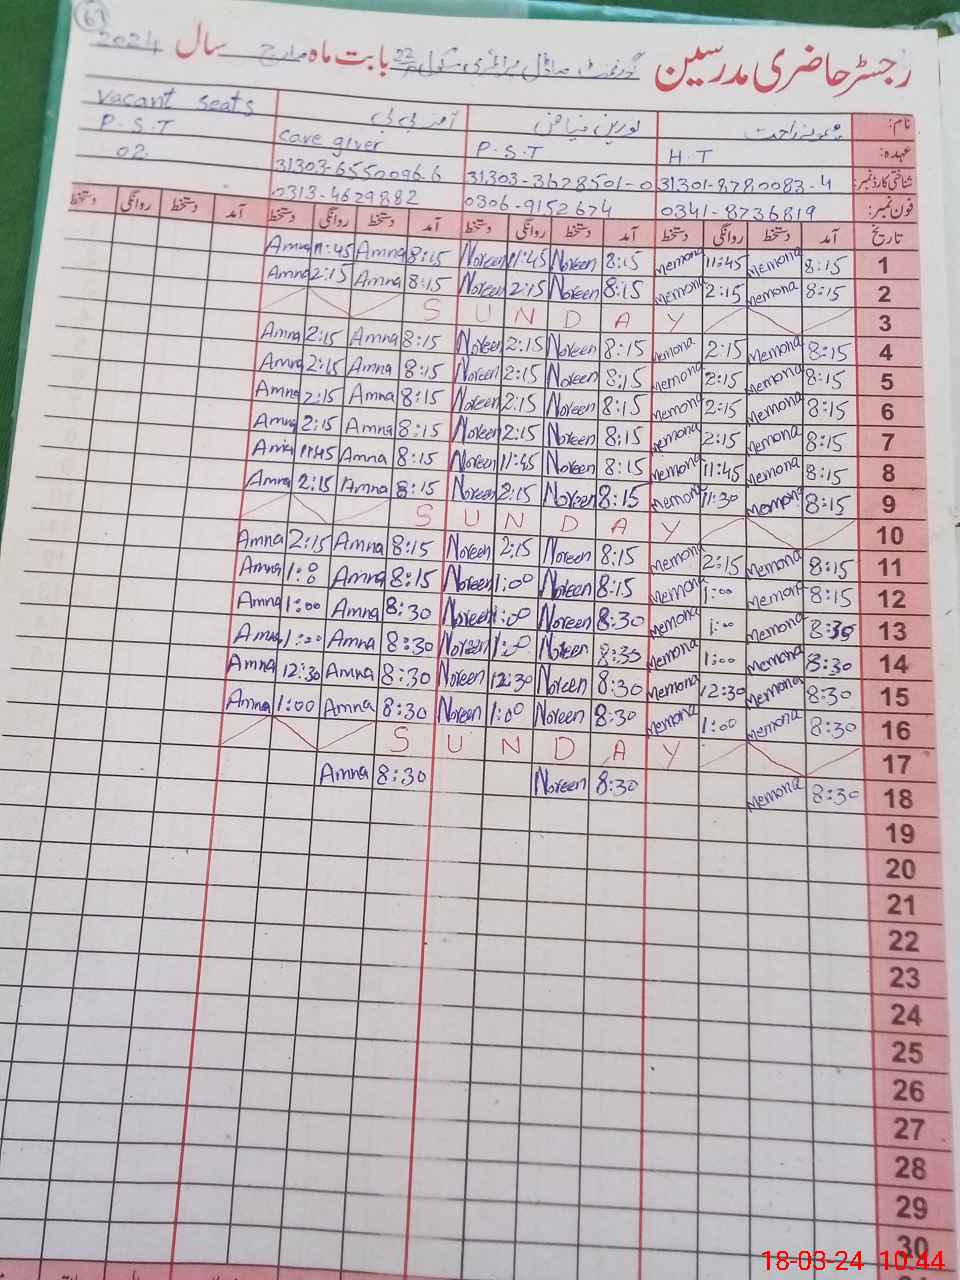 61
رجسٹر حاضری مدرسین گورنمنٹ ماڈل پرائمری سکول بابت ماہ مارچ سال 2024
نام: میمونہ راحت نورین فیاض آمنہ بی بی vacant seats
عہدہ: H.T P.S.T care giver P.S.T
شناختی کارڈ نمبر: 31301-8780083-4 31303-3628501-0 31303-6550096.6 02
فون نمبر: 0341-8736819 0306-9152674 0313-4629882
تاریخ آمد دستخط روانگی دستخط آمد دستخط روانگی دستخط آمد دستخط روانگی دستخط آمد دستخط روانگی دستخط
1 8:15 Memona 11:45 Memona 8:15 Noreen 11:45 Noreen 8:15 Amna 11:45 Amna
2 8:15 Memona 2:15 Memona 8:15 Noreen 2:15 Noreen 8:15 Amna 2:15 Amna
3 S U N D A Y
4 8:15 Memona 2:15 Memona 8:15 Noreen 2:15 Noreen 8:15 Amna 2:15 Amna
5 8:15 Memona 2:15 Memona 8:15 Noreen 2:15 Noreen 8:15 Amna 2:15 Amna
6 8:15 Memona 2:15 Memona 8:15 Noreen 2:15 Noreen 8:15 Amna 2:15 Amna
7 8:15 Memona 2:15 Memona 8:15 Noreen 2:15 Noreen 8:15 Amna 2:15 Amna
8 8:15 Memona 11:45 Memona 8:15 Noreen 11:45 Noreen 8:15 Amna 11:45 Amna
9 8:15 Memona 11:30 Memona 8:15 Noreen 2:15 Noreen 8:15 Amna 2:15 Amna
10 S U N D A Y
11 8:15 Memona 2:15 Memona 8:15 Noreen 2:15 Noreen 8:15 Amna 2:15 Amna
12 8:15 Memona 1:00 Memona 8:15 Noreen 1:00 Noreen 8:15 Amna 1:00 Amna
13 8:30 Memona 1:00 Memona 8:30 Noreen 1:00 Noreen 8:30 Amna 1:00 Amna
14 8:30 Memona 1:00 Memona 8:30 Noreen 1:00 Noreen 8:30 Amna 1:00 Amna
15 8:30 Memona 12:30 Memona 8:30 Noreen 12:30 Noreen 8:30 Amna 12:30 Amna
16 8:30 Memona 1:00 Memona 8:30 Noreen 1:00 Noreen 8:30 Amna 1:00 Amna
17 S U N D A Y
18 8:30 Memona 8:30 Noreen 8:30 Amna
19
20
21
22
23
24
25
26
27
28
29
30
18-03-24 10:44